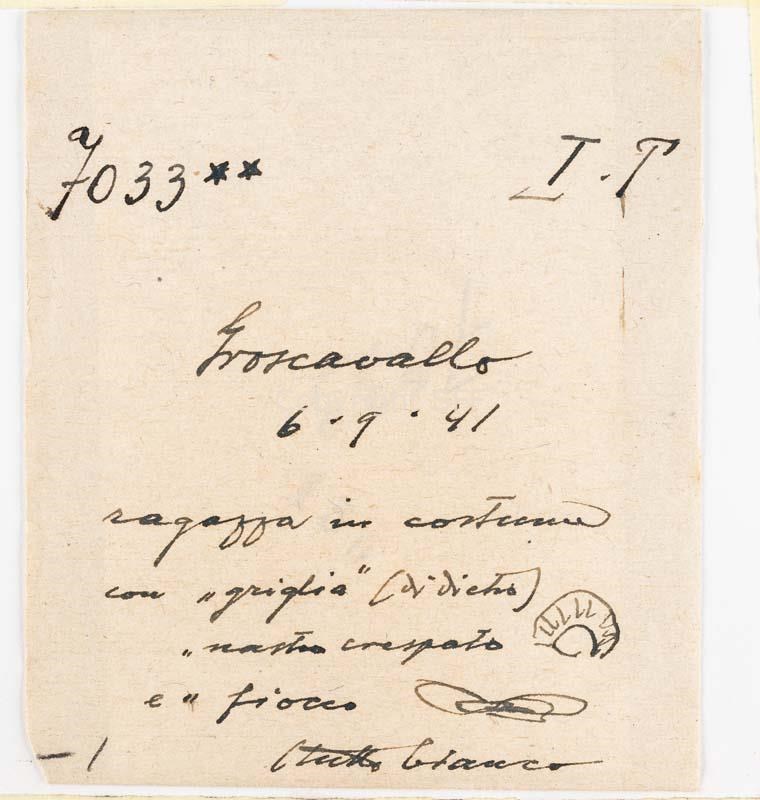 7033** I.T
Groscavallo
6.9.41
ragazza in costume
con „griglia" (di dietro)
„nastro crespato
e „ fiocco
(tutto bianco
- 1